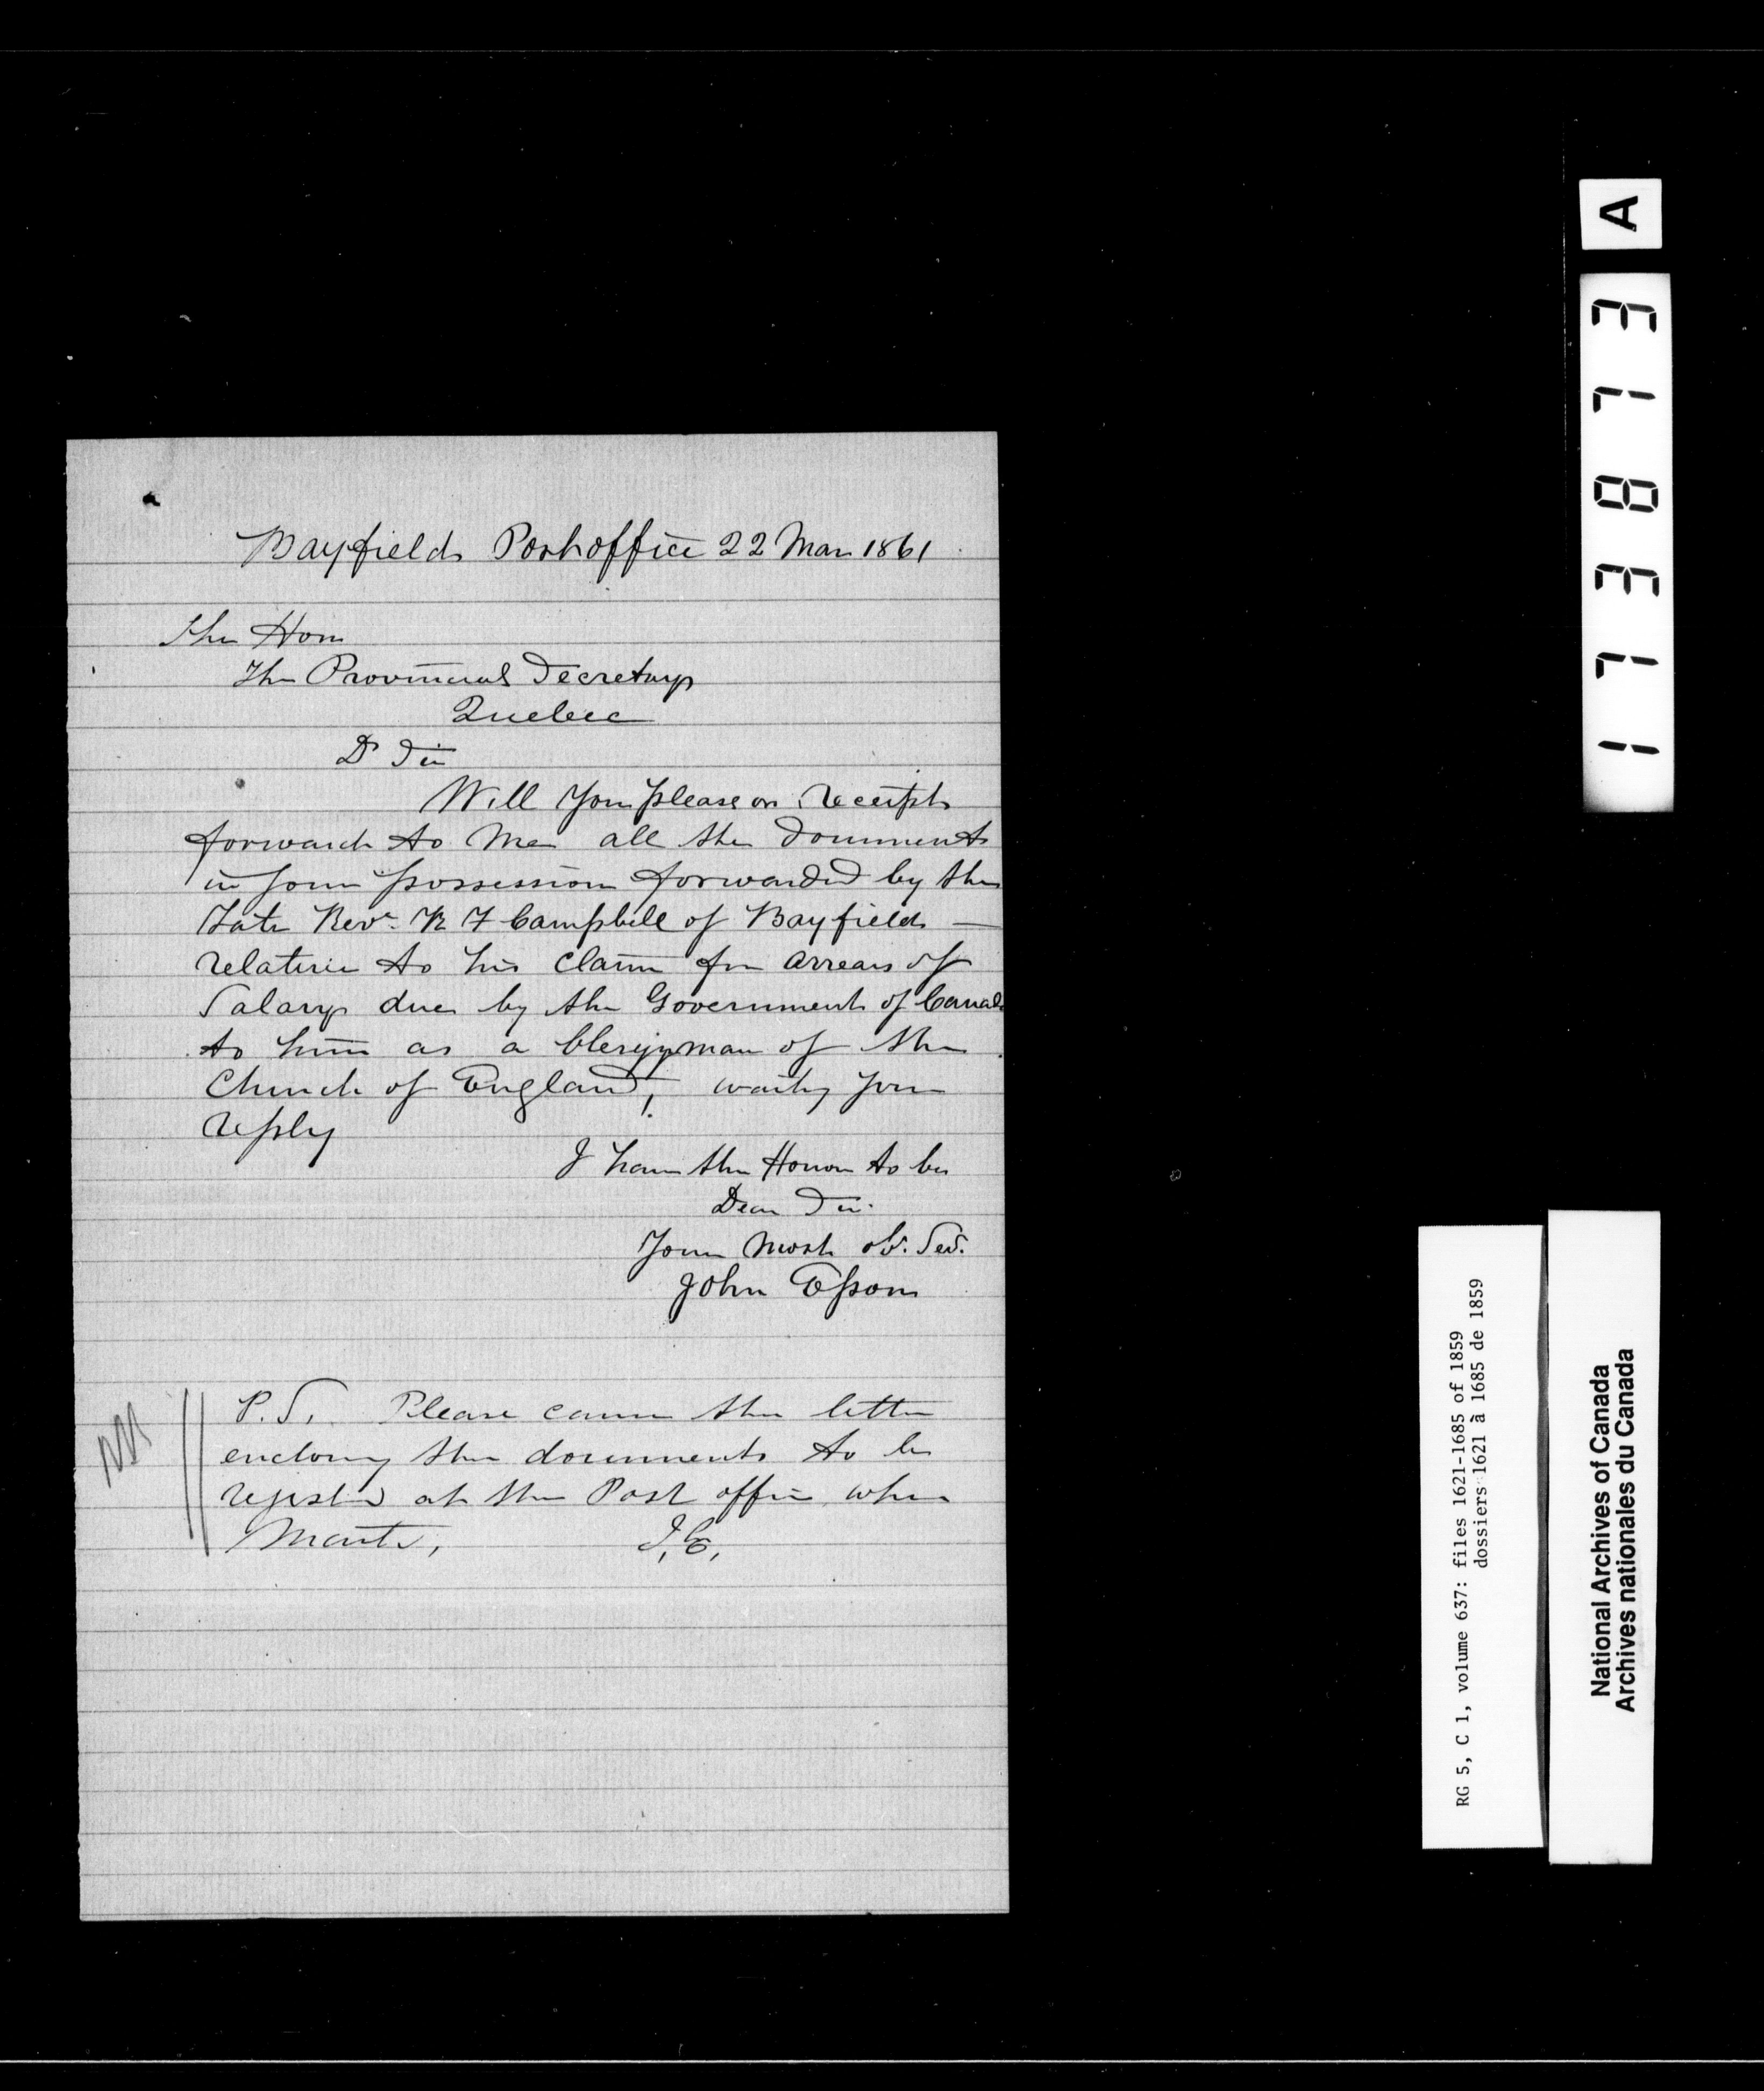 Bayfield Postoffice 22 Mar 1861
The Hon
The Provincial Secretary
Quebec
Dr Sir
Will you please on receipt
forward to me all the documents
in your possession forwarded by the
late Revd. R F Campbell of Bayfield —
relative to his claim for arrears of
Salary due by the Government of Canada
to him as a Clergyman of the
Church of England, waiting your
reply
I have the Honor to be
Dear Sir
Your most ob. Ser.
John Esson
P.S. Please cause the letter
enclosing the documents to be
registd at the Post office when
J.E.
NB
A
117873
RG 5, C 1, volume 637: files 1621-1685 of 1859
dossiers 1621 à 1685 de 1859
National Archives of Canada
Archives nationales du Canada